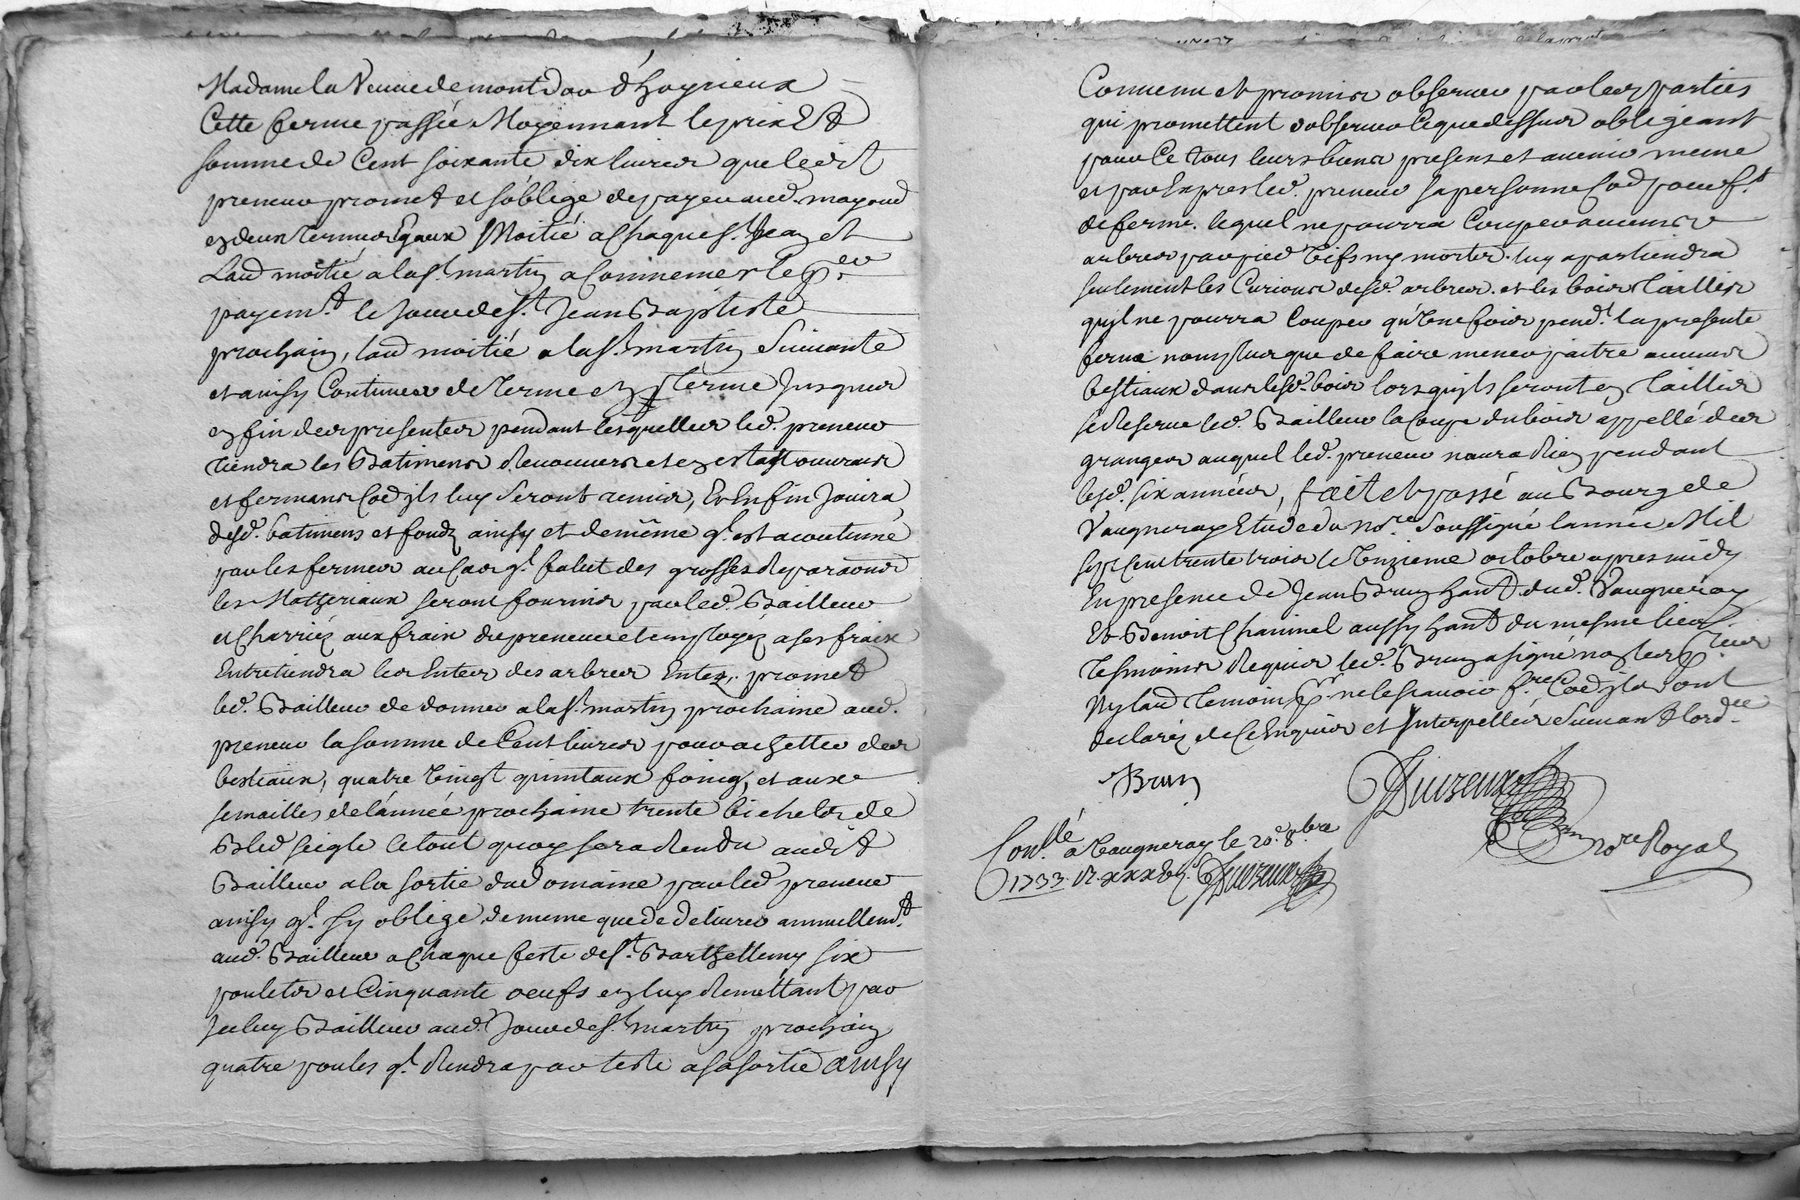 Madame la Veuve de montdor d'hoyrieux
Cette ferme passée Moyennant le prix Et
somme de Cent soixante dix livres que ledit
preneur promet et s'oblige de payer aud. mayoud
en deux termes Egaux Moitié a Chaque St. Jean et
Laud moitié a la St. martin a Commencer le per.
payemt. le Jour de St. Jean Baptiste
prochain, laud moitié a la St. martin Suivante
et ainsy Continuer de terme en terme Jusques
en fin des presentes pendant lesquelles led. preneur
tiendra les Batimens Recouvers et en estat ouvrans
et fermans Co͞e ils luy seront remis, Et Enfin Jouira
desd. batimens et fonds ainsy et de même ql. est acoutumé
par les fermiers au Cas ql. falut des grosses Reparaons
les Matheriaux seront fournis par led. Bailleur
et Charriéz aux frais du preneur et employéz a ses fraix
Entretiendra les Entes des arbres Entez, promet
led. Bailleur de donner a la St. martin prochaine aud.
preneur la somme de Cent livres pour achetter des
bestiaux, quatre Vingt quintaux foing, et aux
semailles de l'année prochaine trente bichets de
Bled seigle le tout quoy sera Rendu audit
Bailleur a la sortie dud domaine par led preneur
ainsy ql. sy oblige de meme que de delivrer annuellemt.
aud. Bailleur a Chaque feste de St. Barthellemy six
poulets et Cinquante oeufs en luy Remettant par
Iceluy Bailleur aud. Jour de St. martin prochain
quatre poules ql. Rendra par teste a sa sortie ainsy
Convenu et promis observer par les parties
qui promettent d'observer ce que dessus obligeant
pour Ce tous leurs biens presens et avenir meme
et par Expres led. preneur sa personne
de ferme. lequel ne pourra Couper aucuns
arbres par pied Vifs ny morts. luy apartiendra
seulement les Curions desd. arbres. et les bois Taillis
quil ne pourra Couper qu'Une fois pendt. la presente
ferme non plus que de faire mener paitre aucuns
bestiaux dans lesd. bois lorsquils seront en Taillis
se Reserve led. Bailleur la Coupe du bois appellé des
granges auquel led. preneur n'aura Rien pendant
lesd. six années, fait et passé au Bourg de
Vaugneray Etude du Nore. Soussigné l'année Mil
sept Cent trente trois le Unzieme octobre apres midy
En presence de Jean Brun hant. dud. Vaugneray
Et Benoit Chavinel aussy hant du mesme lieu
Tesmoins Requis led. Brun a signé non les
Ny laud Temoin pr. ne le scavoir fre. Co͞e ils ont
declaréz de Ce Enquis et Interpelléz Suivant lordce
Brun
Duvzeux
nore Royal
Conllé a Vaugneray le 20e. 8bre
1733. Duvzeux